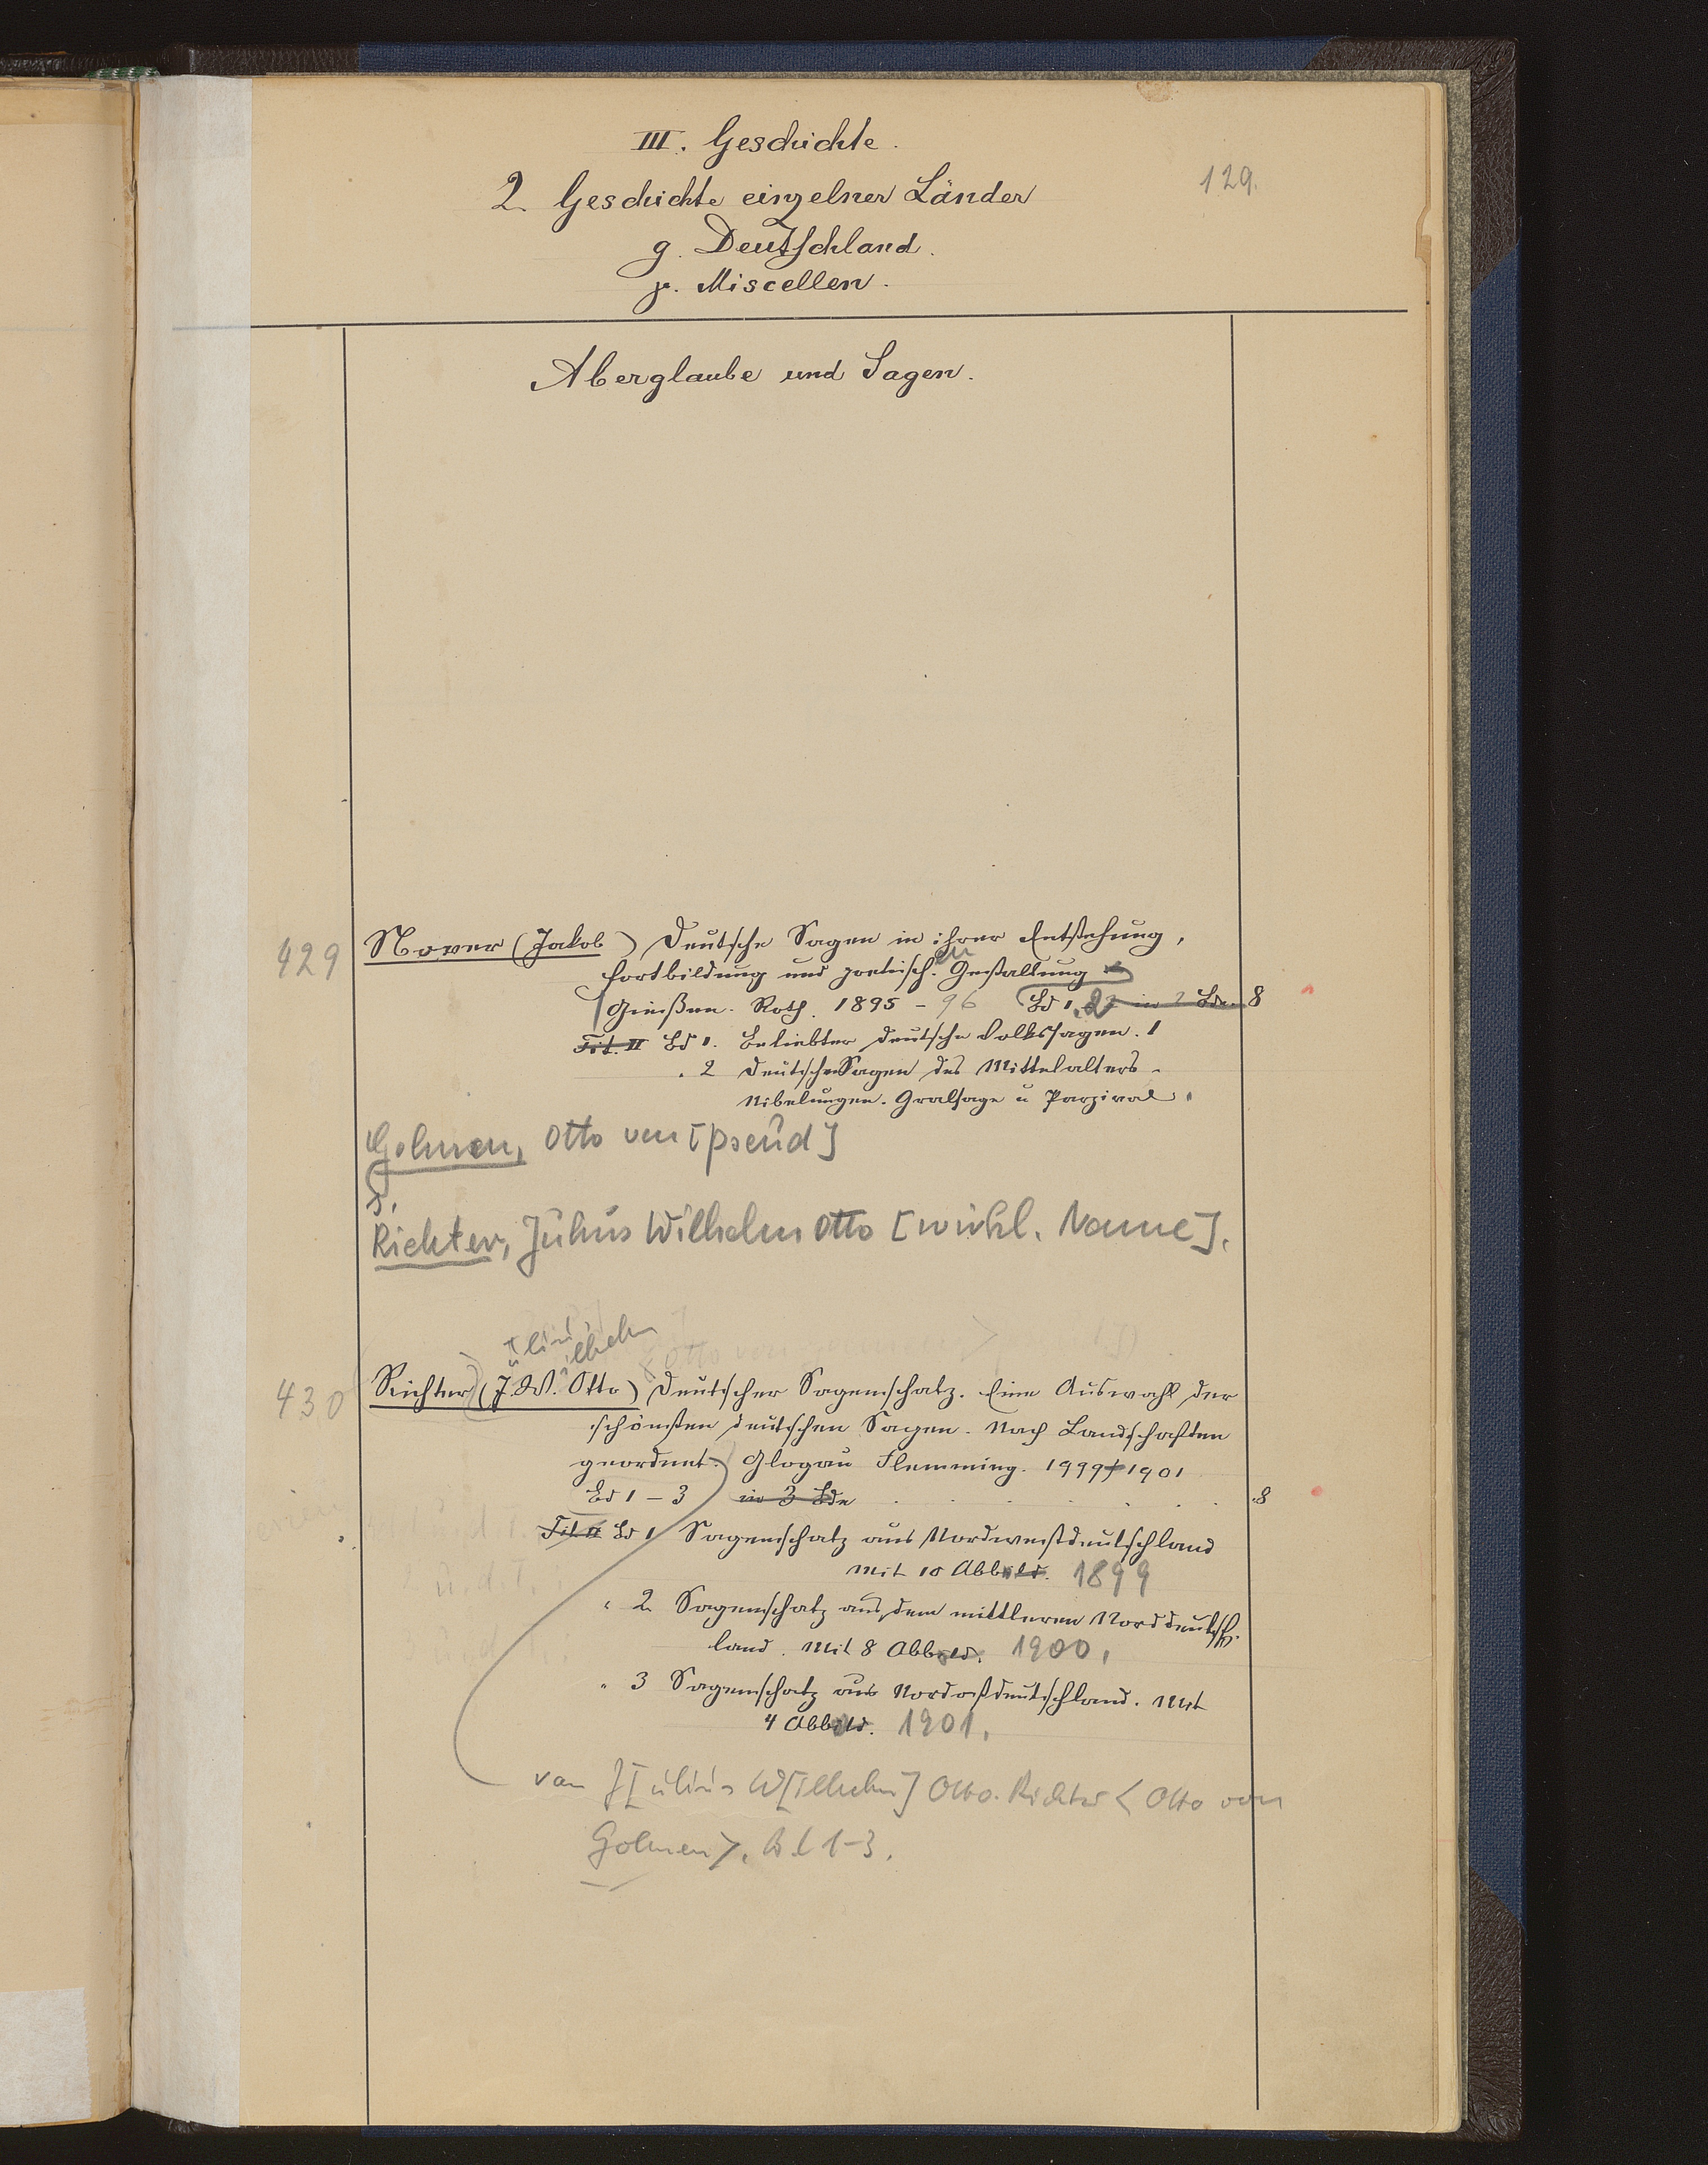 III. Geschichte.
129.
2. Geschichte einzelner Länder
g. Deutschland.
γ. Miscellen.
Aberglaube und Sagen.
429 Nover (Jakob) Deutsche Sagen in ihrer Entstehung,
Fortbildung und poetisch.en Gestaltung
Giessen. Roth. 1895 - 96 Bd 1.2 in 2 Bdn. 8
Tit. II Bd 1. Beliebte deutsche Volkssagen. 1
" 2 Deutsche Sagen des Mittelalters.
Nibelungen. Gralsage u Parzival.
Golmen, Otto von [pseud]
s.
Richter, Julius Wilhelm Otto [wirkl. Name].
ulius ilhelm
430 Richter (J. W. Otto) Deutscher Sagenschatz. Eine Auswahl der
schönsten deutschen Sagen. Nach Landschaften
geordnet. Glogau Flemming. 1999-1901
Bd 1 - 3 in 3 Bde . . . . . 8
Tit. II Bd 1 Sagenschatz aus Nordwestdeutschland
Mit 10 Abbild. 1899
" 2 Sagenschatz aus dem mittleren Norddeutsch-
land. Mit 8 Abbild. 1900.
" 3 Sagenschatz aus Nordostdeutschland. Mit
4 Abbild. 1901.
von J[ulius W[ilhelm] Otto Richter < Otto von
Golmen >. Bd 1-3.